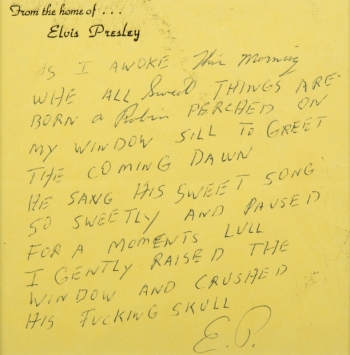 From the home of . . .
Elvis Presley
AS I AWOKE This Morning
WHE ALL Sweet THINGS ARE
BORN a Robin PERCHED ON
MY WINDOW SILL TO GREET
THE COMING DAWN
HE SANG HIS SWEET SONG
SO SWEETLY AND PAUSED
FOR A MOMENTS LULL
I GENTLY RAISED THE
WINDOW AND CRUSHED
HIS FUCKING SKULL
E.P.